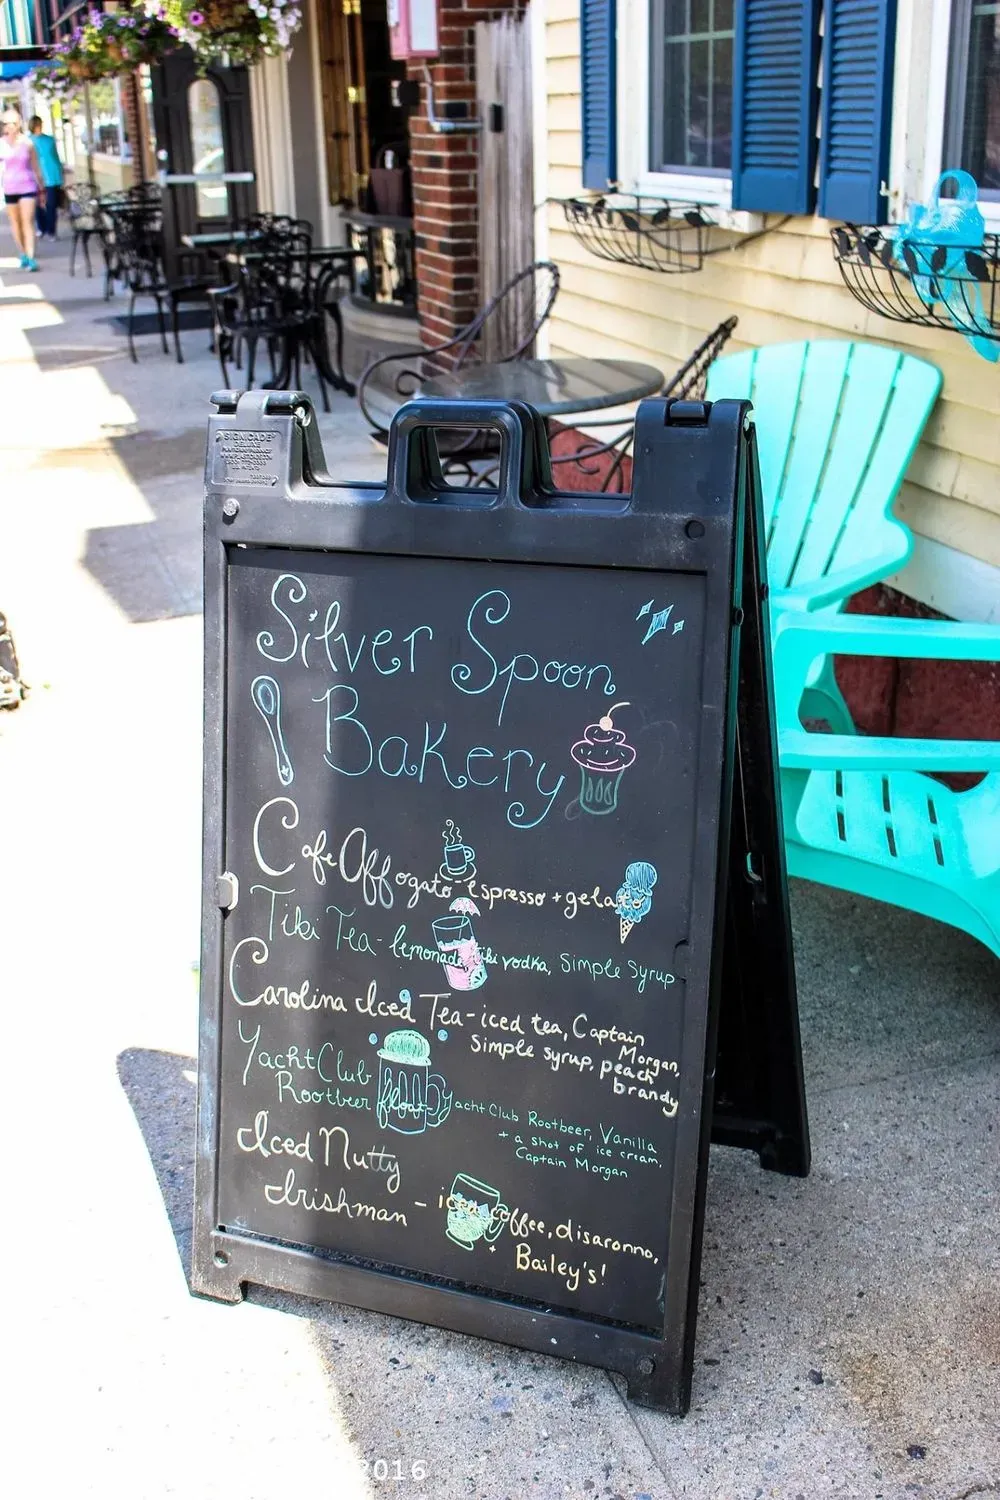 SIGNICADE
DELUXE
Silver Spoon
Bakery
Cafe Affogato - espresso + gelato
Tiki Tea - lemonade, tiki vodka, Simple Syrup
Carolina Iced Tea - iced tea, Captain
Morgan,
Simple syrup, peach
brandy
Yacht Club
Rootbeer float - Yacht Club Rootbeer, Vanilla
ice cream,
+ a shot of
Captain Morgan
Iced Nutty
Irishman - iced coffee, disaronno,
Bailey's!
2016